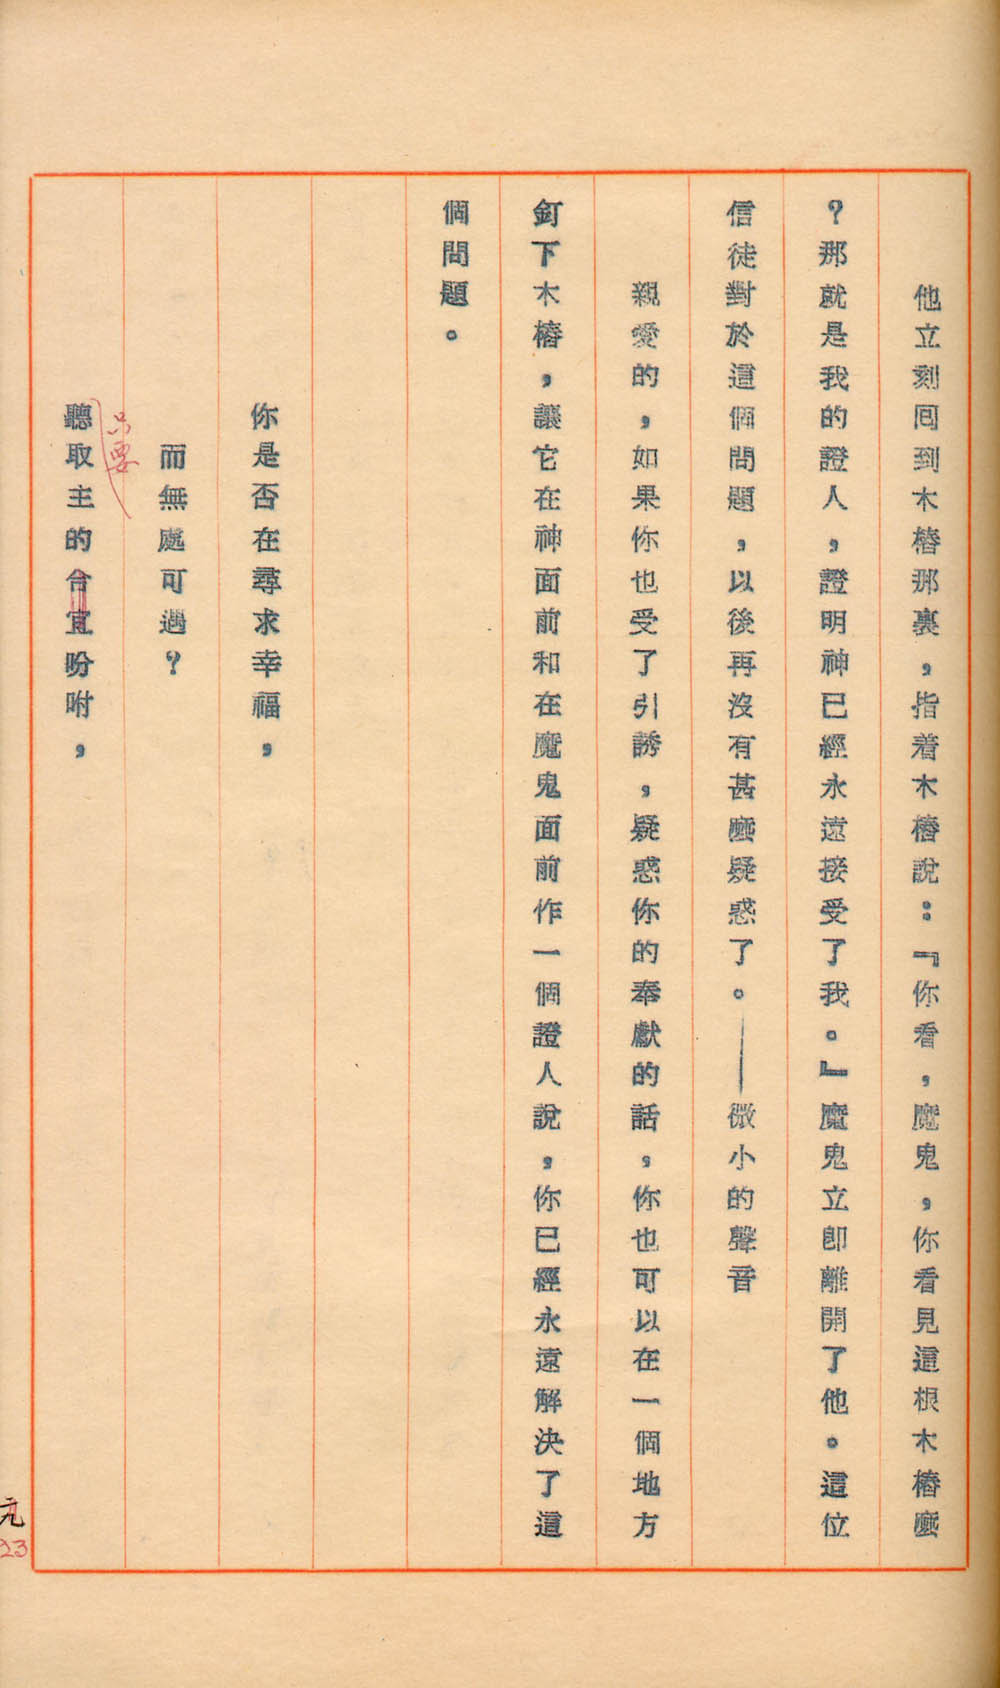 他立刻囘到木樁那裏，指着木樁說：『你看，魔鬼，你看見這根木樁麼
？那就是我的證人，證明神已經永遠接受了我。』魔鬼立即離開了他。這位
信徒對於這個問題，以後再沒有甚麼疑惑了。——微小的聲音
親愛的，如果你也受了引誘，疑惑你的奉獻的話，你也可以在一個地方
釘下木樁，讓它在神面前和在魔鬼面前作一個證人說，你已經永遠解決了這
個問題。
你是否在尋求幸福，
而無處可遇？
只要
聽取主的合宜吩咐，
元
23